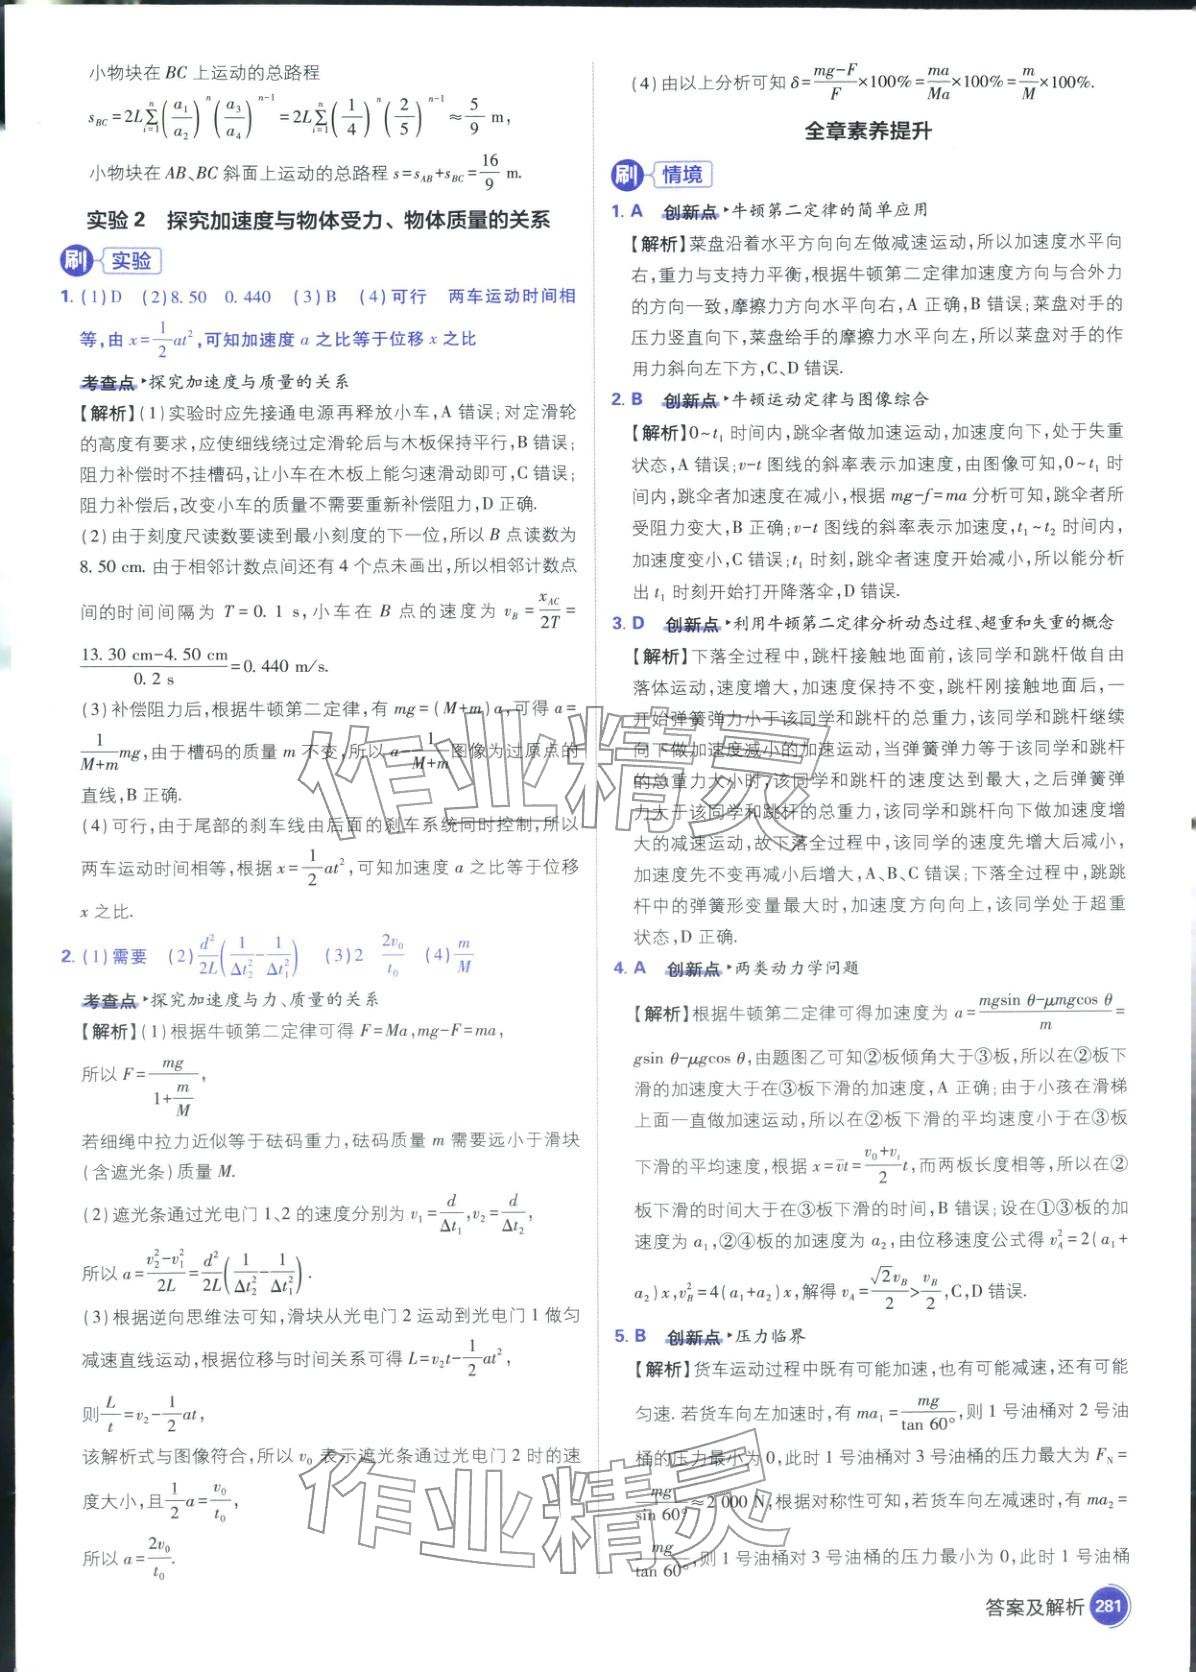 小物块在 BC 上运动的总路程
s_BC=2L∑_{i=1}^{n}(a₁/a₂)^n(a₃/a₄)^{n-1}=2L∑_{i=1}^{n}(1/4)^n(2/5)^{n-1}≈5/9 m,
小物块在 AB、BC 斜面上运动的总路程 s=s_AB+s_BC=16/9 m.
实验 2 探究加速度与物体受力、物体质量的关系
刷 实验
1. (1)D (2)8.50 0.440 (3)B (4)可行 两车运动时间相
等,由 x=1/2 at²,可知加速度 a 之比等于位移 x 之比
考查点·探究加速度与质量的关系
【解析】(1)实验时应先接通电源再释放小车,A 错误;对定滑轮
的高度有要求,应使细线绕过定滑轮后与木板保持平行,B 错误;
阻力补偿时不挂槽码,让小车在木板上能匀速滑动即可,C 错误;
阻力补偿后,改变小车的质量不需要重新补偿阻力,D 正确.
(2)由于刻度尺读数要读到最小刻度的下一位,所以 B 点读数为
8.50 cm. 由于相邻计数点间还有 4 个点未画出,所以相邻计数点
间的时间间隔为 T=0.1 s,小车在 B 点的速度为 v_B=x_AC/2T=
(13.30 cm-4.50 cm)/0.2 s=0.440 m/s.
(3)补偿阻力后,根据牛顿第二定律,有 mg=(M+m)a,可得 a=
1/(M+m) mg,由于槽码的质量 m 不变,所以 a-1/(M+m) 图像为过原点的
直线,B 正确.
(4)可行,由于尾部的刹车线由后面的刹车系统同时控制,所以
两车运动时间相等,根据 x=1/2 at²,可知加速度 a 之比等于位移
x 之比.
2. (1)需要 (2)d²/2L(1/Δt₂²-1/Δt₁²) (3)2 2v₀/t₀ (4)m/M
考查点·探究加速度与力、质量的关系
【解析】(1)根据牛顿第二定律可得 F=Ma,mg-F=ma,
所以 F=mg/(1+m/M),
若细绳中拉力近似等于砝码重力,砝码质量 m 需要远小于滑块
(含遮光条)质量 M.
(2)遮光条通过光电门 1、2 的速度分别为 v₁=d/Δt₁,v₂=d/Δt₂,
所以 a=(v₂²-v₁²)/2L=d²/2L(1/Δt₂²-1/Δt₁²).
(3)根据逆向思维法可知,滑块从光电门 2 运动到光电门 1 做匀
减速直线运动,根据位移与时间关系可得 L=v₂t-1/2 at²,
则 L/t=v₂-1/2 at,
该解析式与图像符合,所以 v₀ 表示遮光条通过光电门 2 时的速
度大小,且 1/2 a=v₀/t₀,
所以 a=2v₀/t₀.
(4)由以上分析可知 δ=(mg-F)/F×100%=ma/Ma×100%=m/M×100%.
全章素养提升
刷 情境
1. A 创新点·牛顿第二定律的简单应用
【解析】菜盘沿着水平方向向左做减速运动,所以加速度水平向
右,重力与支持力平衡,根据牛顿第二定律加速度方向与合外力
的方向一致,摩擦力方向水平向右,A 正确,B 错误;菜盘对手的
压力竖直向下,菜盘给手的摩擦力水平向左,所以菜盘对手的作
用力斜向左下方,C、D 错误.
2. B 创新点·牛顿运动定律与图像综合
【解析】0~t₁ 时间内,跳伞者做加速运动,加速度向下,处于失重
状态,A 错误;v-t 图线的斜率表示加速度,由图像可知,0~t₁ 时
间内,跳伞者加速度在减小,根据 mg-f=ma 分析可知,跳伞者所
受阻力变大,B 正确;v-t 图线的斜率表示加速度,t₁~t₂ 时间内,
加速度变小,C 错误;t₁ 时刻,跳伞者速度开始减小,所以能分析
出 t₁ 时刻开始打开降落伞,D 错误.
3. D 创新点·利用牛顿第二定律分析动态过程、超重和失重的概念
【解析】下落全过程中,跳杆接触地面前,该同学和跳杆做自由
落体运动,速度增大,加速度保持不变,跳杆刚接触地面后,一
开始弹簧弹力小于该同学和跳杆的总重力,该同学和跳杆继续
向下做加速度减小的加速运动,当弹簧弹力等于该同学和跳杆
的总重力大小时,该同学和跳杆的速度达到最大,之后弹簧弹
力大于该同学和跳杆的总重力,该同学和跳杆向下做加速度增
大的减速运动,故下落全过程中,该同学的速度先增大后减小,
加速度先不变再减小后增大,A、B、C 错误;下落全过程中,跳跳
杆中的弹簧形变量最大时,加速度方向向上,该同学处于超重
状态,D 正确.
4. A 创新点·两类动力学问题
【解析】根据牛顿第二定律可得加速度为 a=(mgsin θ-μmgcos θ)/m=
gsin θ-μgcos θ,由题图乙可知②板倾角大于③板,所以在②板下
滑的加速度大于在③板下滑的加速度,A 正确;由于小孩在滑梯
上面一直做加速运动,所以在②板下滑的平均速度小于在③板
下滑的平均速度,根据 x=v̄t=(v₀+v_t)/2 t,而两板长度相等,所以在②
板下滑的时间大于在③板下滑的时间,B 错误;设在①③板的加
速度为 a₁,②④板的加速度为 a₂,由位移速度公式得 v_A²=2(a₁+
a₂)x,v_B²=4(a₁+a₂)x,解得 v_A=√2v_B/2>v_B/2,C、D 错误.
5. B 创新点·压力临界
【解析】货车运动过程中既有可能加速,也有可能减速,还有可能
匀速. 若货车向左加速时,有 ma₁=mg/tan 60°,则 1 号油桶对 2 号油
桶的压力最小为 0,此时 1 号油桶对 3 号油桶的压力最大为 F_N=
mg/sin 60°≈2 000 N,根据对称性可知,若货车向左减速时,有 ma₂=
mg/tan 60°,则 1 号油桶对 3 号油桶的压力最小为 0,此时 1 号油桶
答案及解析 281
作业精灵
作业精灵